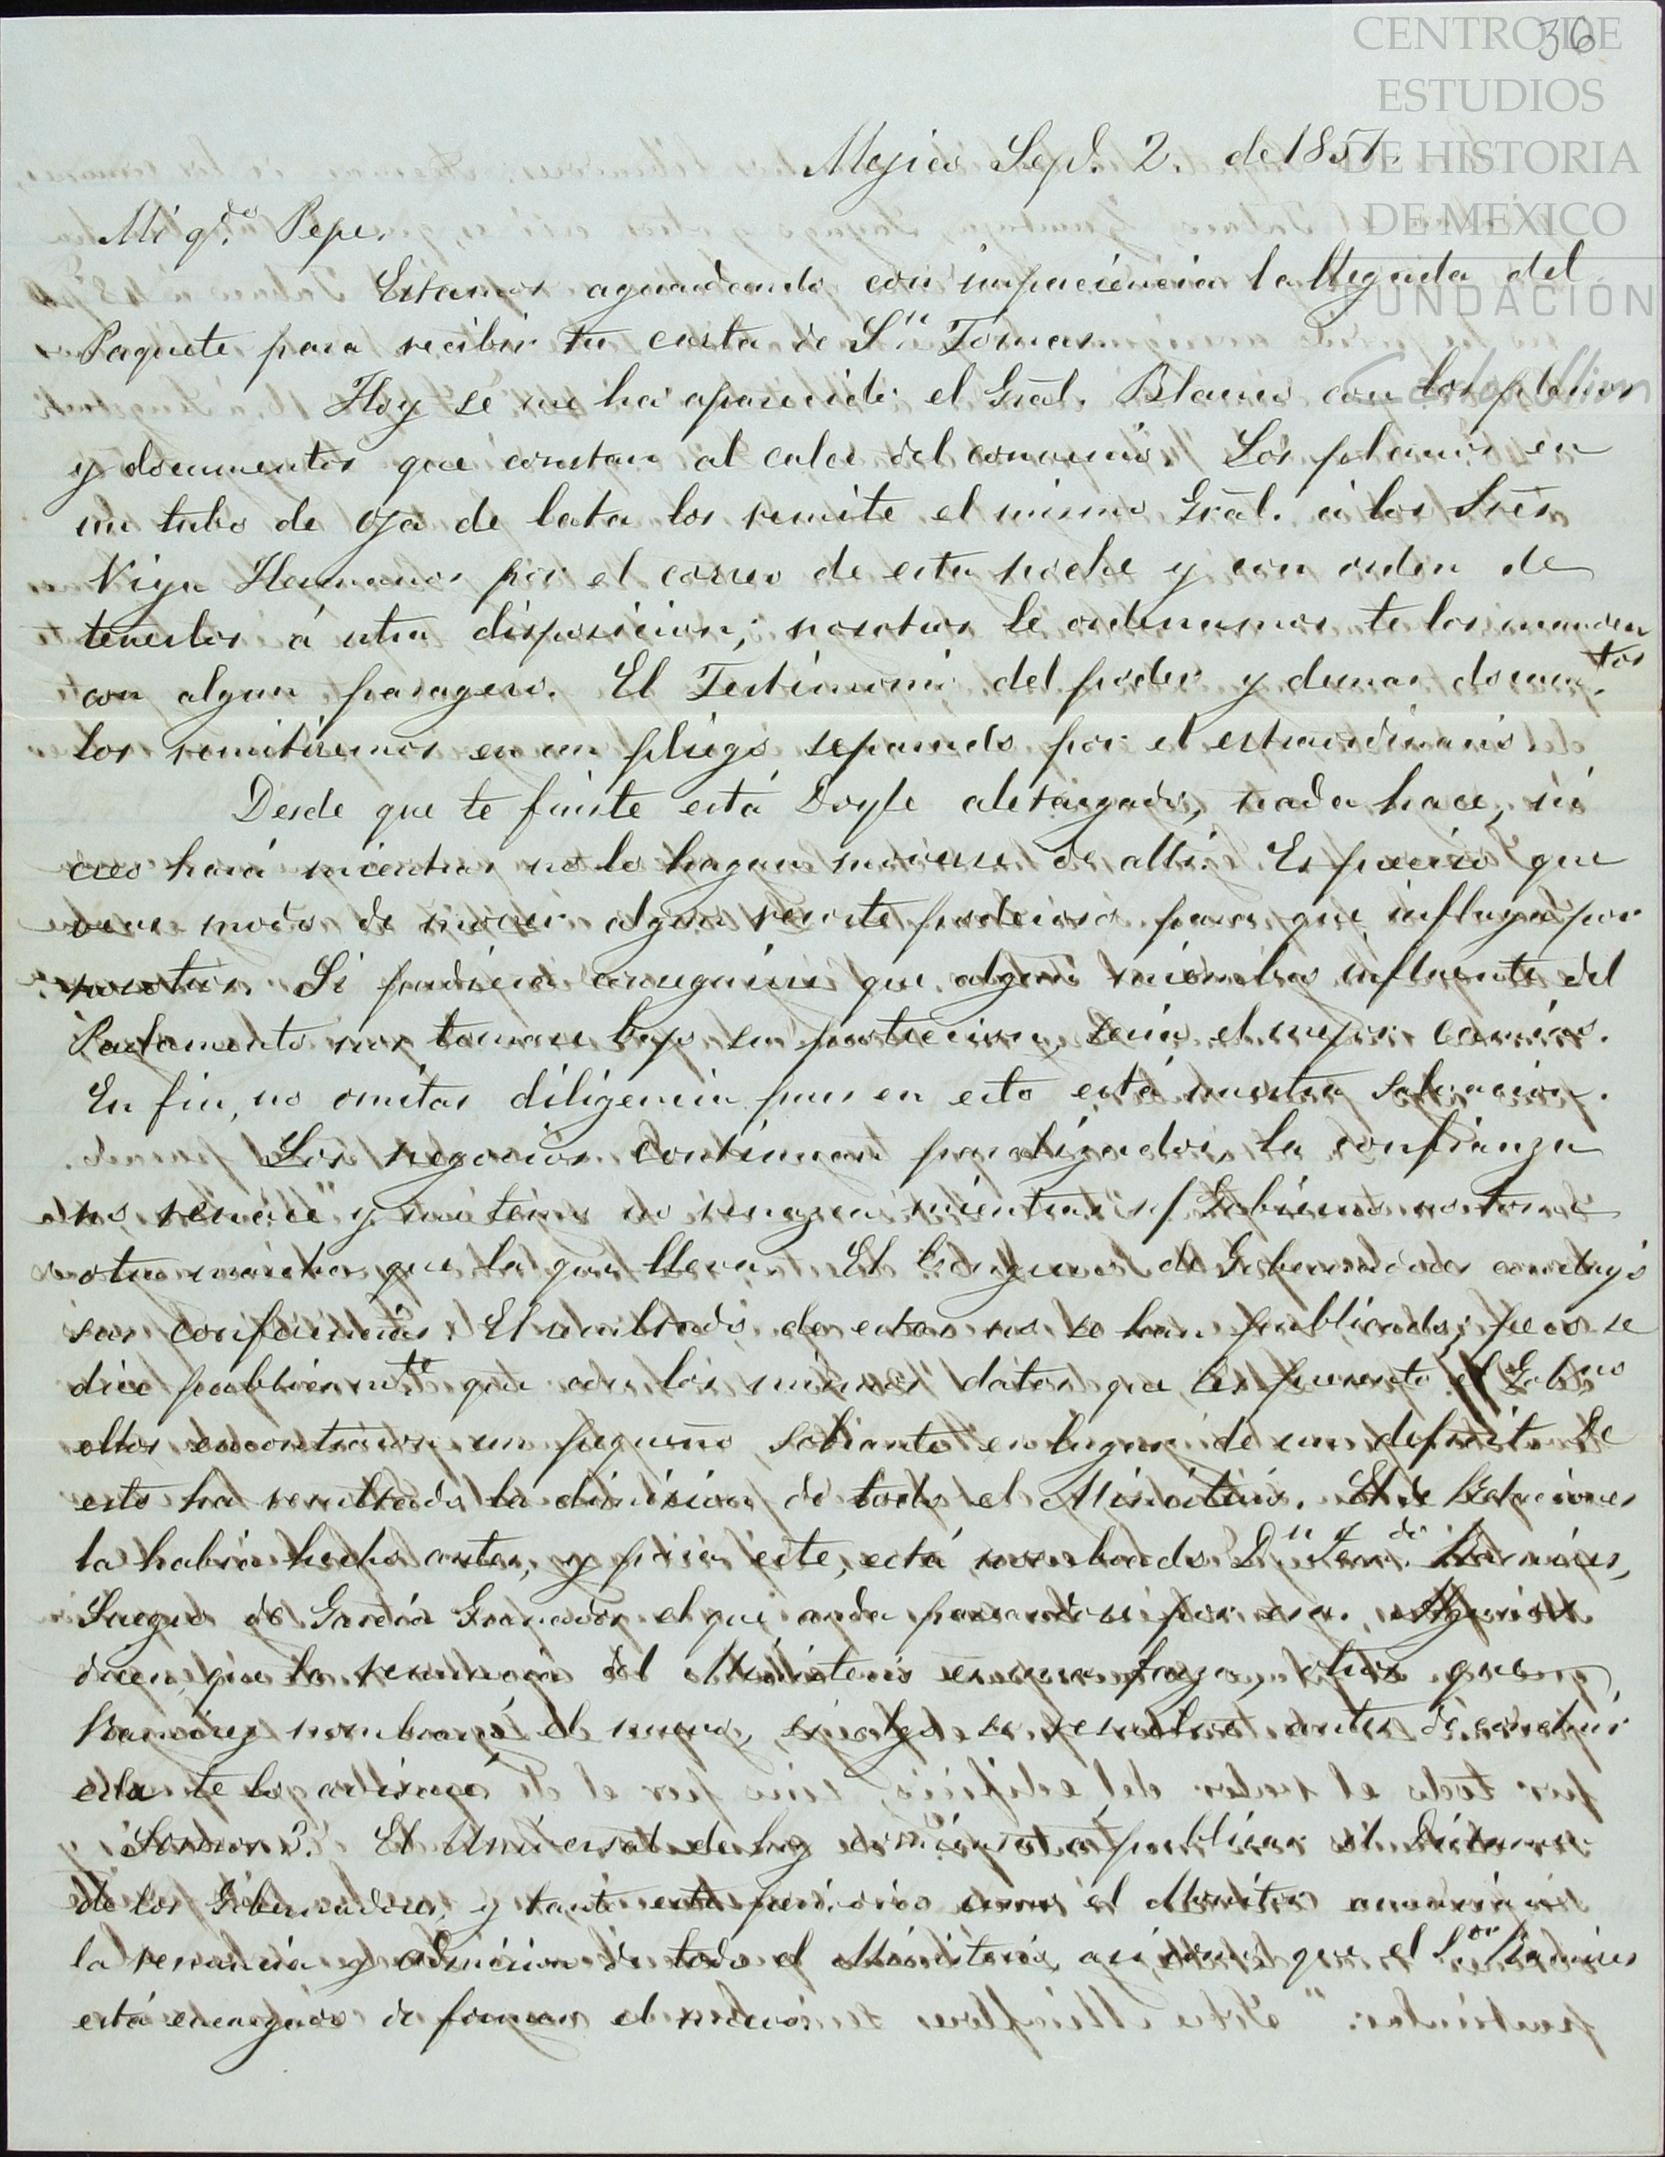 36
CENTRO DE
ESTUDIOS
DE HISTORIA
DE MEXICO
FUNDACIÓN
Mejico Sep.e 2. de 1851.
Mi q.do Pepe.
Estamos aguardando con impaciencia la llegada del
Paquete para recibir tu carta de S.n Tomas.
Hoy se me ha aparecido el Gral. Blanco con los planos
y documentos que constan al calce del convenio. Los planos en
un tubo de oja de lata los remite el mismo Gral. á los Sres
Viya Hermanos por el correo de esta noche y con orden de
tenerlos á ntra disposicion; nosotros le ordenamos te los manden
con algun pasagero. El Testimonio del poder y demas documtos
los remitiremos en un pliego separado por el estraordinario.
Desde que te fuiste está Doyle aletargado, nada hace, ni
creo hará mientras no lo hagan moverse de allí. Es preciso que
veas modo de mover algun resorte poderoso para que influya por
nosotros. Si pudiera conseguirse que algun miembro influente del
Parlamento nos tomase bajo su proteccion, seria el mejor camino.
En fin, no omitas diligencia pues en esto está nuestra salvacion.
Los negocios continuan paralizados, la confianza
no renace y me temo no renazca mientras el Gobierno no tome
otra marcha que la que lleva. El Congreso de Gobernadores concluyó
sus conferencias. El resultado de estas no se han publicado, pero se
dice publicamte que con los mismos datos que les presento el Gobno
ellos encontraron un pequeño sobrante en lugar de un deficit. De
esto ha resultado la dimision de todo el Ministerio. El de Relaciones
la habia hecho antes, y para este, está nombrado D.n Fern.do Ramires,
Suegro de Garcia Granados el que anda paseandose por esa. Algunos
dicen que la renuncia del Ministerio es una farza, otros que
Ramirez nombrará el nuevo, si algo se resuelve antes de concluir
esta te lo avisaré.
Somos 3. El Universal de hoy comienza á publicar el Dictamen
de los Gobernadores, y tanto este periodico como el Monitor anuncian
la renuncia y admision de todo el Ministerio, asi como que el S.or Ramires
está encargado de formar el nuevo.